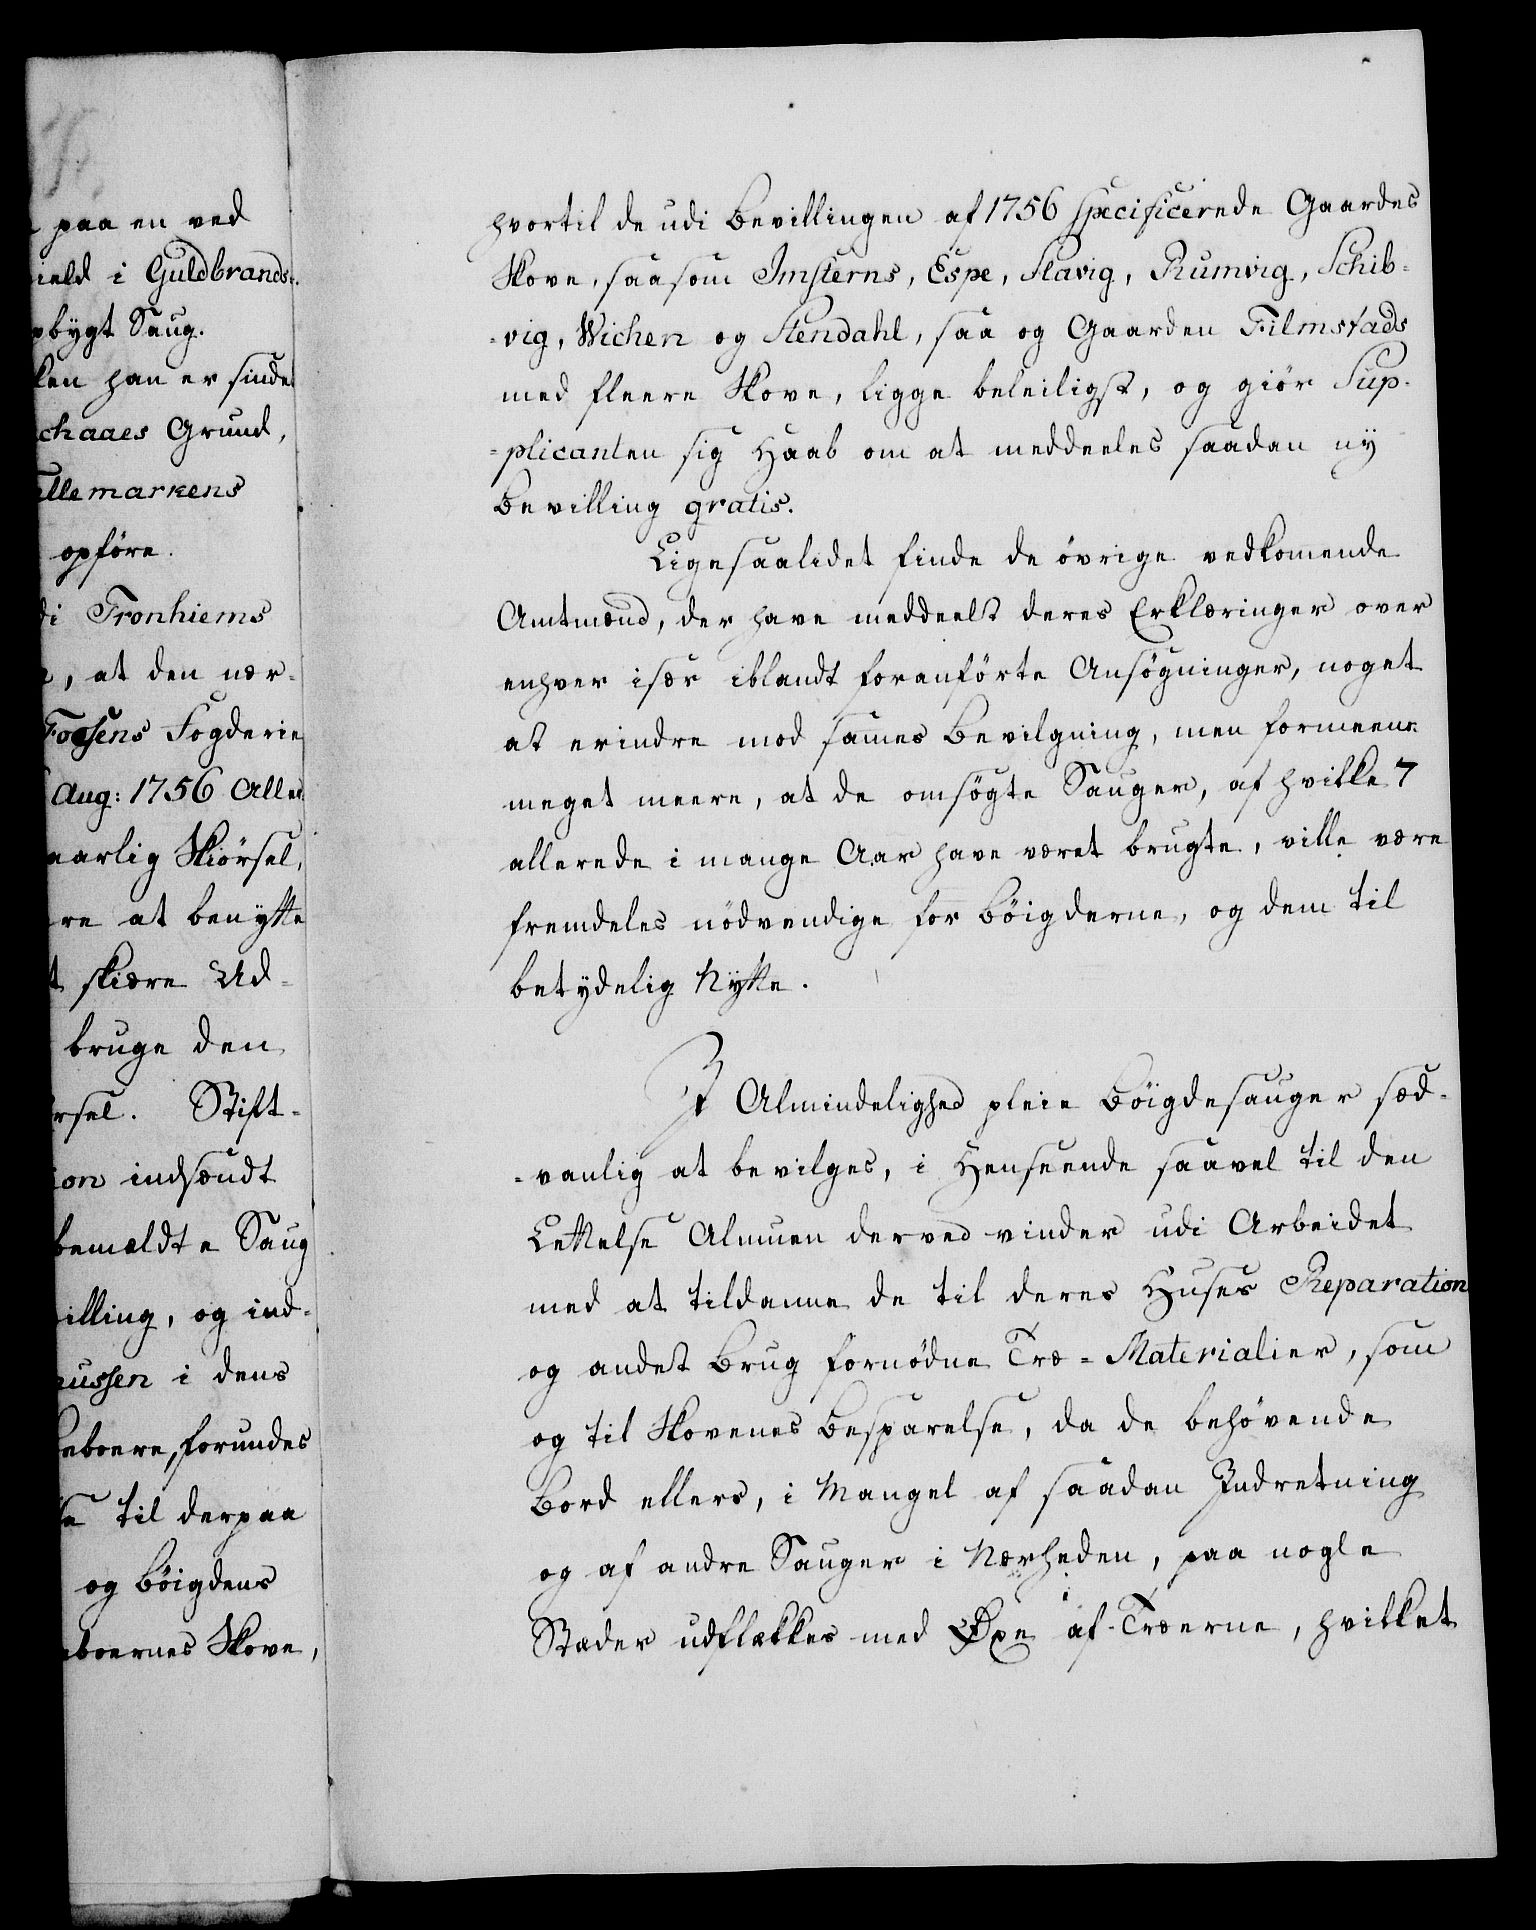 paa en ved
ield i Guldbrands-
bygt Saug.
ken han er sindet
chaaes Grund,
ellemarkens
opföre.
di Tronhiems
, at den nær-
Foesens Fogderie
Aug: 1756 Aller
aarlig Skiörsel,
re at benytte
t skiære Ud-
bruge den
rsel. Stift-
ion indsændt
bemældte Saug
villing, og ind-
nussen i dens
beboere, forundes
se til derpaa
og Böigdens
eboernes Skove,
hvortil de udi Bevillingen af 1756 specificerede Gaardes
Skove, saasom Imsterns, Espe, Slavig, Rumvig, Schib-
-vig, Wichen og Stendahl, saa og Gaarden Filmstads
med fleere Skove, ligge beleiligst, og giör Sup-
-plicanten sig Haab om at meddeeles saadan ny
Bevilling gratis.
Ligesaalidet finde de övrige vedkomende
Amtmænd, der have meddeelt deres Erklæringer over
enhver især iblandt foranförte Ansögninger, noget
at erindre mod sammes Bevilgning, men formeene
meget meere, at de omsögte Sauger, af hvilke 7
allerede i mange Aar have været brugte, ville være
fremdeles nödvendige for Böigderne, og dem til
betydelig Nytte.
I Almindelighed pleie Böigdesauger sæd-
-vanlig at bevilges, i Henseende saavel til den
Lettelse Almuen derved vinder udi Arbeidet
med at tildanne de til deres Huses Reparation
og andet Brug fornödne Træ-Materialier, som
og til Skovenes Besparelse, da de behövende
Bord ellers, i Mangel af saadan Indretning
og af andre Sauger i Nærheden, paa nogle
Stæder udflækkes med Öxe af Træerne, hvilket